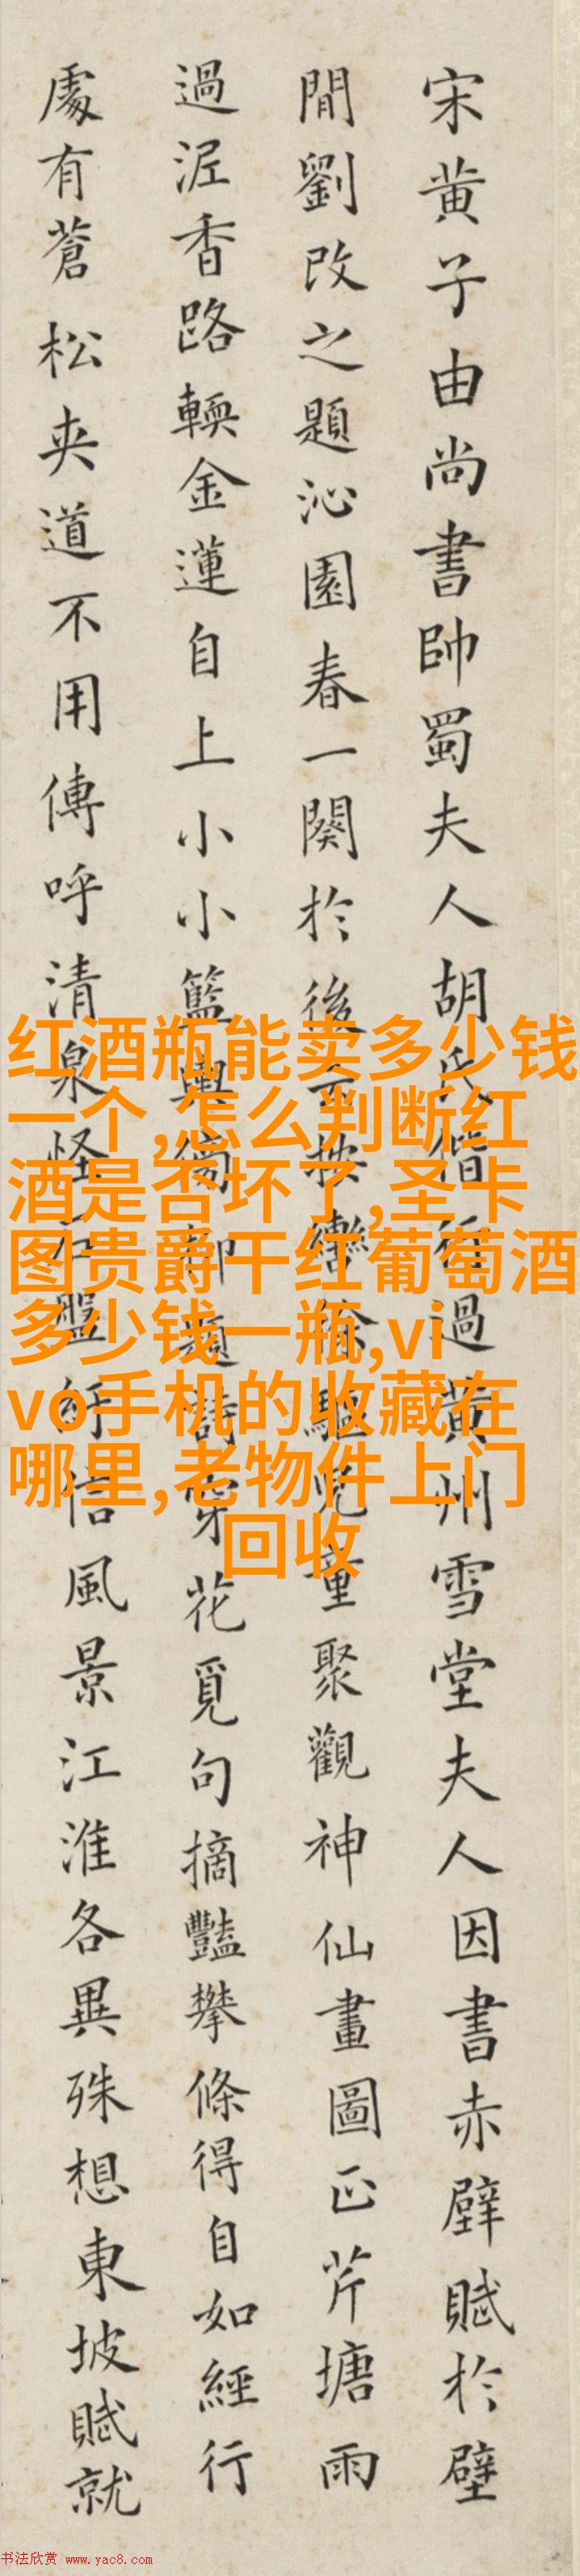 宋黄子由尚書帥蜀夫人胡氏偕行過黄州雪堂夫人因書赤壁賦於壁
間劉改之題沁園春一闋於後云按轡徐驅兒童聚觀神仙畫圖正芹塘雨
過泥香路輭金蓮自上小小籃輿題詩穿花覓句摘豔攀條得自如經行
處有蒼松夾道不用傳呼清泉怪石盤紆信風景江淮各異殊想東坡賦就
红酒瓶能卖多少钱
一个,怎么判断红
酒是否坏了,圣卡
图贵爵干红葡萄酒
多少钱一瓶,vi
vo手机的收藏在
哪里,老物件上门
回收
书法欣赏 www.yac8.com